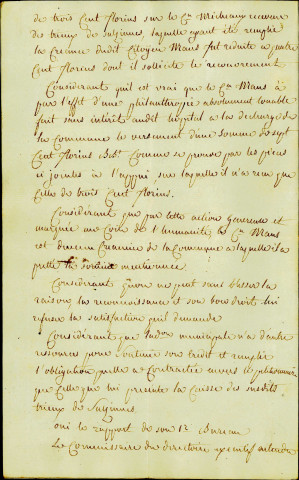 de trois Cent florins sur le Cn Micheaux receveur
des vieux de Suzeines, laquelle ayant été remplie
la Creance dudit Citoyen Mans fut reduite a quatre
Cent florins dont il sollicite le recouvrement
Considerant qu'il est vrai que le Cn Mans à
par l'effet d'une philanthropie absolument louable
fait sans intérêt audit hopital a la decharge de
la Commune le versement d'une somme de sept
Cent florins Bbt. Comme se prouve par les pièces
ci jointes à l'appui sur laquelle il n'a reçu que
Celle de trois Cent florins.
Considérant que par cette action genereuse et
marquée au Coin de l'humanité le Cn Mans
est devenu Creancier de la Commune a laquelle il a
pretté la somme mentionnée
Considerant qu'on ne peut sans blesser la
raison, la reconnoissance et son bon droit lui
refuser la satisfaction qu'il demande
Considérant que l'adon municipale n'a d'autre
ressources pour soutenir son credit et remplir
l'obligation qu'elle a Contractée envers le petitionnaire
que Celle que lui presente la Caisse des susdits
vieux de
oui le rapport de son 1r Bureau
Le Commissaire du directoire executif entendu